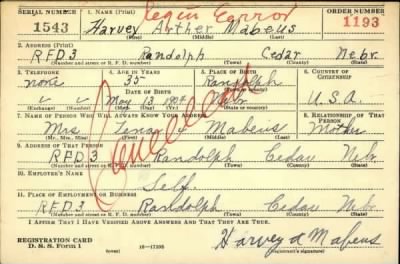 SERIAL NUMBER 1. NAME (Print) ORDER NUMBER
1543 Harvey Arther Mabeus 1193
(First) (Middle) (Last)
2. ADDRESS (Print)
RFD 3 Randolph Cedar Nebr.
(Number and street or R. F. D. number) (Town) (County) (State)
3. TELEPHONE 4. AGE IN YEARS 5. PLACE OF BIRTH 6. COUNTRY OF CITIZENSHIP
none 35 Randolph
DATE OF BIRTH
May 13 1904 Nebr. U.S.A.
(Exchange) (Number) (Mo.) (Day) (Yr.) (State or country)
7. NAME OF PERSON WHO WILL ALWAYS KNOW YOUR ADDRESS 8. RELATIONSHIP OF THAT PERSON
Mrs Lena Mabeus Mother
(Mr., Mrs., Miss) (First) (Middle) (Last)
9. ADDRESS OF THAT PERSON
RFD 3 Randolph Cedar Nebr.
(Number and street or R. F. D. number) (Town) (County) (State)
10. EMPLOYER'S NAME
Self.
11. PLACE OF EMPLOYMENT OR BUSINESS
RFD 3 Randolph Cedar Nebr.
(Number and street or R. F. D. number) (Town) (County) (State)
I AFFIRM THAT I HAVE VERIFIED ABOVE ANSWERS AND THAT THEY ARE TRUE.
REGISTRATION CARD
D. S. S. Form 1 (over) 16—17105 Harvey A Mabeus
Cancelled